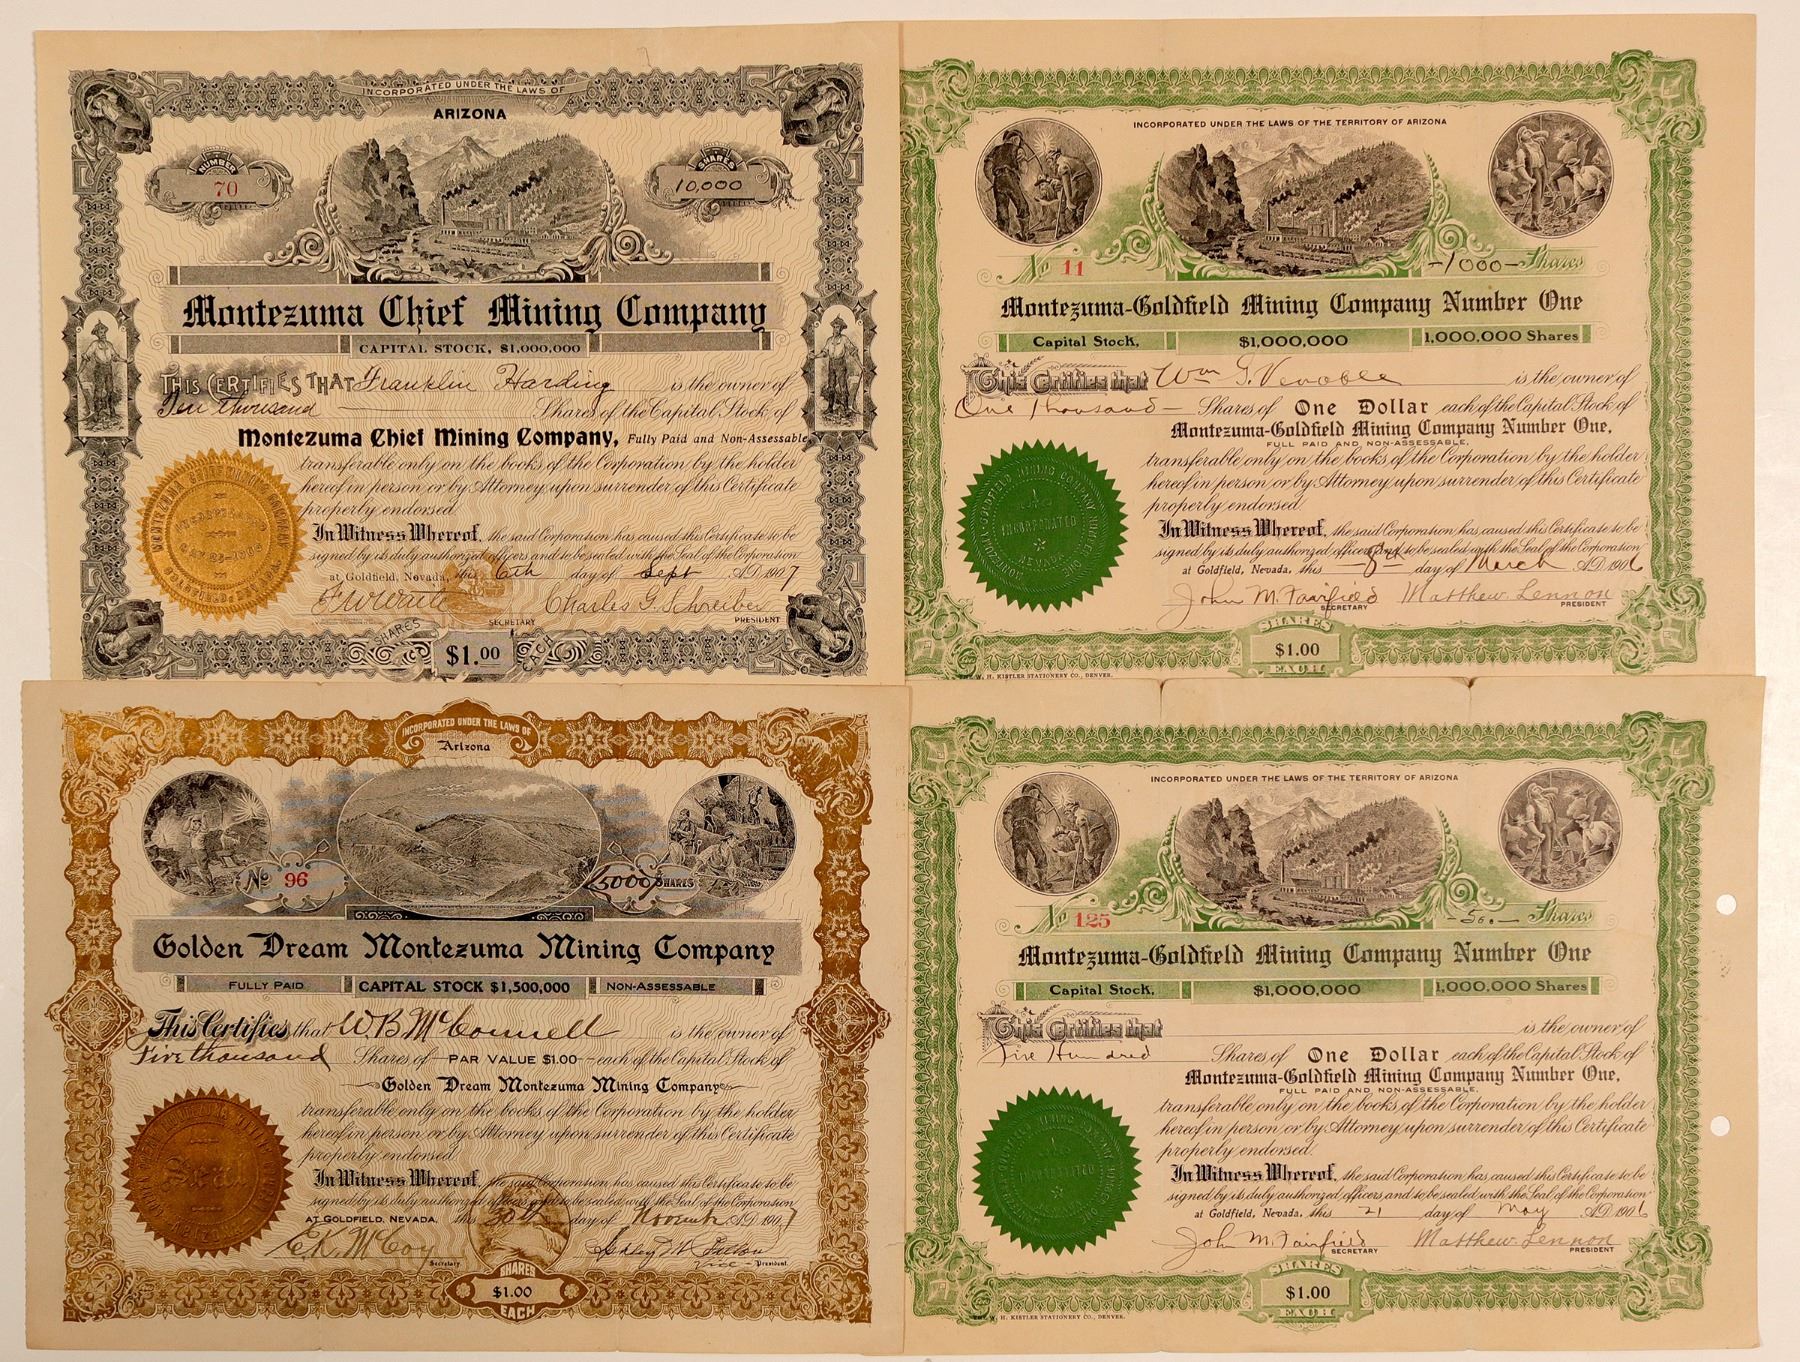 INCORPORATED UNDER THE LAWS OF
ARIZONA
NUMBER
70
SHARES
10,000
Montezuma Chief Mining Company
CAPITAL STOCK, $1,000,000
THIS CERTIFIES THAT Franklin Harding is the owner of
Ten thousand Shares of the Capital Stock of
Montezuma Chief Mining Company, Fully Paid and Non-Assessable
transferable only on the books of the Corporation by the holder
hereof in person or by Attorney upon surrender of this Certificate
properly endorsed.
In Witness Whereof, the said Corporation has caused this Certificate to be
signed by its duly authorized officers and to be sealed with the Seal of the Corporation
at Goldfield, Nevada, this 6th day of Sept A.D. 1907
Charles G. Schreiber
SECRETARY PRESIDENT
SHARES $1.00 EACH
INCORPORATED UNDER THE LAWS OF THE TERRITORY OF ARIZONA
No 11
-1000- Shares
Montezuma-Goldfield Mining Company Number One
Capital Stock, $1,000,000 1,000,000 Shares
This Certifies that Wm G. Venable is the owner of
One Thousand Shares of One Dollar each of the Capital Stock of
Montezuma-Goldfield Mining Company Number One,
FULL PAID AND NON-ASSESSABLE,
transferable only on the books of the Corporation by the holder
hereof in person or by Attorney upon surrender of this Certificate
properly endorsed.
In Witness Whereof, the said Corporation has caused this Certificate to be
signed by its duly authorized officers and to be sealed with the Seal of the Corporation
at Goldfield, Nevada, this 8 day of March A.D. 1906
John M. Fairfield Matthew Lennon
SECRETARY PRESIDENT
SHARES
$1.00
EACH
THE W. H. KISTLER STATIONERY CO., DENVER.
INCORPORATED
NEVADA
INCORPORATED UNDER THE LAWS OF
Arizona
No 96
5000 SHARES
Golden Dream Montezuma Mining Company
FULLY PAID CAPITAL STOCK $1,500,000 NON-ASSESSABLE
This Certifies that W.B. McConnell is the owner of
Five thousand Shares of PAR VALUE $1.00 each of the Capital Stock of
Golden Dream Montezuma Mining Company
transferable only on the books of the Corporation by the holder
hereof in person or by Attorney upon surrender of this Certificate
properly endorsed.
In Witness Whereof, the said Corporation has caused this Certificate to be
signed by its duly authorized officers and to be sealed with the Seal of the Corporation
AT GOLDFIELD, NEVADA, this 30th day of November A.D. 1907
E.K. McCoy
Secretary Vice-President
SHARES
$1.00
EACH
Seal
INCORPORATED UNDER THE LAWS OF THE TERRITORY OF ARIZONA
No 125
-500- Shares
Montezuma-Goldfield Mining Company Number One
Capital Stock, $1,000,000 1,000,000 Shares
This Certifies that is the owner of
Five Hundred Shares of One Dollar each of the Capital Stock of
Montezuma-Goldfield Mining Company Number One,
FULL PAID AND NON-ASSESSABLE,
transferable only on the books of the Corporation by the holder
hereof in person or by Attorney upon surrender of this Certificate
properly endorsed.
In Witness Whereof, the said Corporation has caused this Certificate to be
signed by its duly authorized officers and to be sealed with the Seal of the Corporation
at Goldfield, Nevada, this 21 day of May A.D. 1906
John M. Fairfield Matthew Lennon
SECRETARY PRESIDENT
SHARES
$1.00
EACH
THE W. H. KISTLER STATIONERY CO., DENVER.